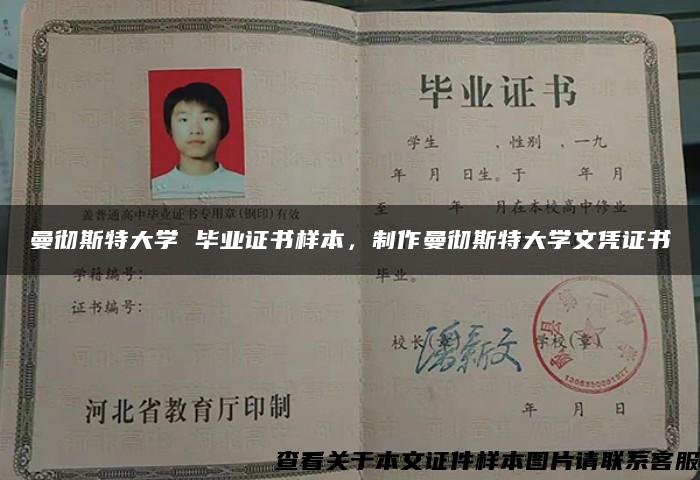 毕业证书
学生 ，性别 ，一九
年 月 日生。于 年 月
至 年 月在本校高中修业
盖普通高中毕业证书专用章(钢印)有效
曼彻斯特大学 毕业证书样本，制作曼彻斯特大学文凭证书
学籍编号：
毕业。
证书编号：
校长(章)
学校(章)
河北省教育厅印制
年 月 日
查看关于本文证件样本图片请联系客服